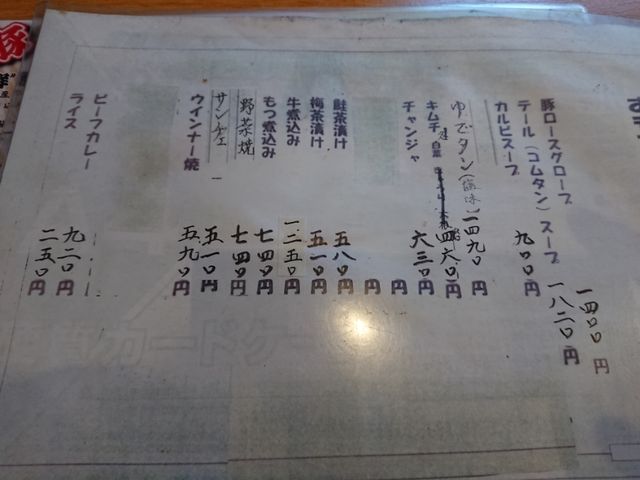 豚ロースグローブ 一四〇〇円
テール(コムタン)スープ 一八二〇円
カルビスープ 九〇〇円
ゆでタン(塩味) 一四九〇円
キムチ 白菜 四六〇円
チャンジャ 六三〇円
円
円
鮭茶漬け 五八〇円
梅茶漬け 五一〇円
牛煮込み 一二五〇円
もつ煮込み 七四〇円
野菜焼 七四〇円
サンチェ 五一〇円
ウインナー焼 五九〇円
ビーフカレー 九二〇円
ライス 二五〇円
カードケー